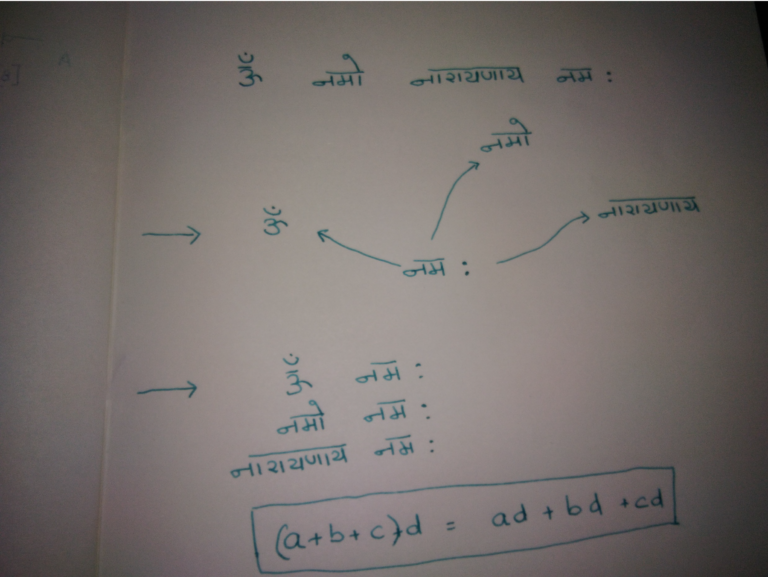 ॐ नमो नारायणाय नम :
नमो
→ ॐ नारायणाय
नम :
→ ॐ नम :
नमो नम :
नारायणाय नम :
(a+b+c)d = ad + bd + cd